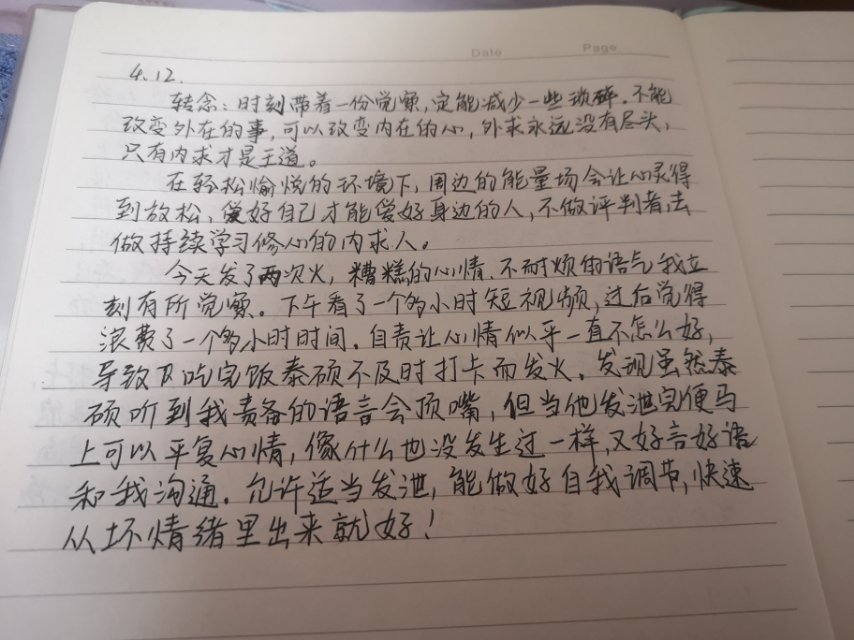 Date Page
4.12.
转念：时刻带着一份觉察，定能减少一些琐碎。不能
改变外在的事，可以改变内在的心，外求永远没有尽头，
只有内求才是王道。
在轻松愉悦的环境下，周边的能量场会让心灵得
到放松，爱好自己才能爱好身边的人，不做评判者，去
做持续学习修心的内求人。
今天发了两次火，糟糕的心情，不耐烦的语气我立
刻有所觉察。下午看了一个多小时短视频，过后觉得
浪费了一个多小时时间，自责让心情似乎一直不怎么好，
导致 吃完饭泰硕不及时打卡而发火。发现虽然泰
硕听到我责备的语音会顶嘴，但当他发泄完便马
上可以平复心情，像什么也没发生过一样，又好言好语
和我沟通。允许适当发泄，能做好自我调节，快速
从坏情绪里出来就好！